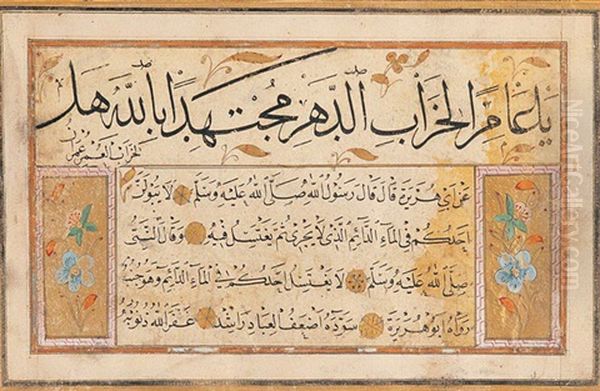 يا عامرًا لخراب الدهر مجتهدًا بالله هل
لخراب العمر عمران
عن ابي هريرة قال قال رسول الله صلى الله عليه وسلم لا يبولن
احدكم في الماء الدائم الذي لا يجري ثم يغتسل فيه وقال النبي
صلى الله عليه وسلم لا يغتسل احدكم في الماء الدائم وهو جنب
رواه ابو هريرة سوده اضعف العباد راشد غفر الله ذنوبه
NiceArtGallery.com